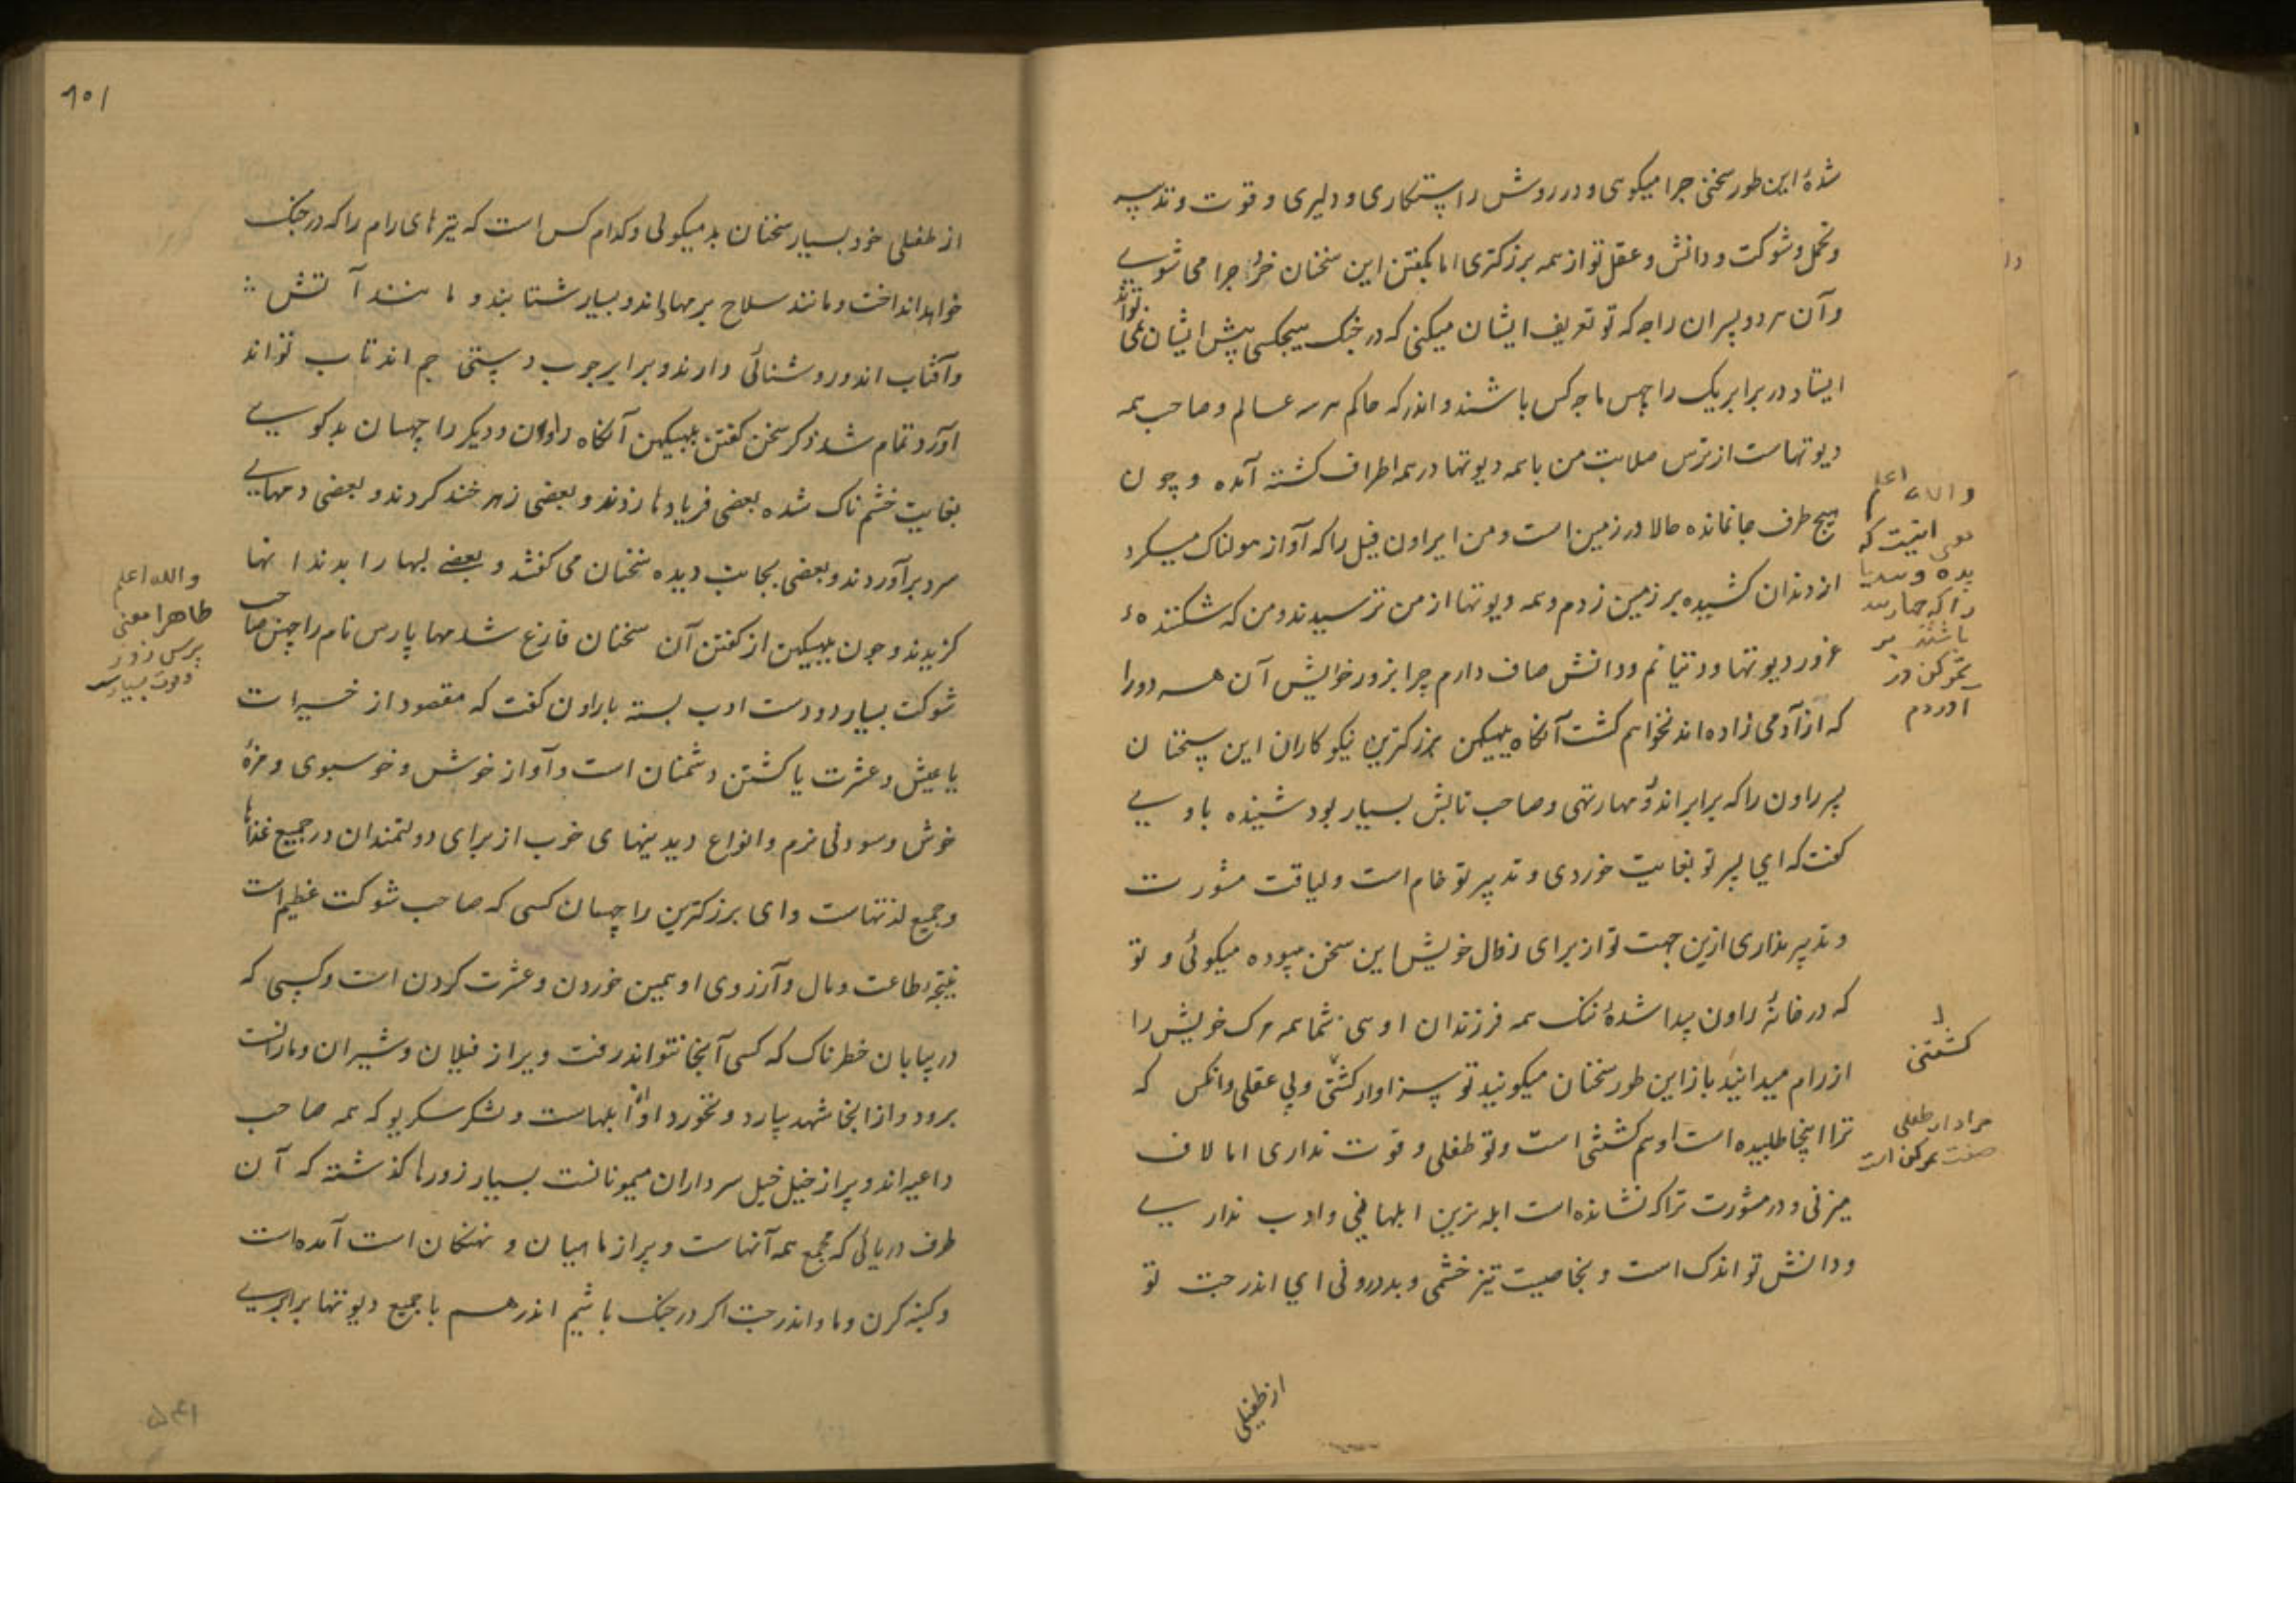 شدهٔ این طور سخن چرا میکوی و در روش راستکاری و دلیری و قوت و تدبیر
و تحمل و شوکت و دانش و عقل تو از همه بزرکتری اما بکفتن این سخنان خرد چرا می شوی
و آن هر دو پسران راجه که تو تعریف ایشان میکنی که در جنک هیچکس پیش ایشان نمی تواند
ایستاد در برابر یک راچهس ما چه کس باشند و اندر که حاکم هر سه عالم و صاحب همه
دیوتهاست از ترس صلابت من با همه دیوتها در همه اطراف کشته آمده و چون
هیچ طرف جا نمانده حالا در زمین است و من ایراون فیل را که آواز هولناک میکرد
از دندان کشیده بر زمین زدم و همه دیوتها از من ترسیدند و من که شکننده
غرور دیوتها و دتیانم و دانش صاف دارم چرا بزور خوایش آن هر دو را
که از آدمی زاده اند نخواهم کشت آنکاه ببیکهن بزرکترین نیکوکاران این سخنان
پسر راون را که برابر اندر و مهارتهی و صاحب تابش بسیار بود شنیده باوی
کفت که ای پسر تو بغایت خوردی و تدبیر تو خام است و لیاقت مشورت
و تدبیر نداری ازین جهت تو از برای زکال خویش این سخن بیهوده میکوئی و تو
که در خانهٔ راون پیدا شدهٔ ننک همه فرزندان اوی شما همه مرک خویش را
از رام میدانید باز این طور سخنان میکوئید تو سزاوار کشتنی و بی عقلی و آنکس که
ترا اینجا طلبیده است او هم کشتنی است و تو طفلی و قوت نداری اما لاف
میزنی و در مشورت ترا که نشانده است ابله ترین ابلهانی و ادب نداری
و دانش تو اندک است و بخاصیت تیز خشمی و بددرونی ای اندرجت تو
از طفلی
والله اعلم
اینست که
را که
باشند
آوردم
کشتنی
مراد از طفلی
۹۰۱
از طفلی خود بسیار سخنان بد میکوئی و کدام کس است که تیرهای رام را که در جنک
خواهد انداخت و مانند سلاح برمهااند و بسیار شتابند و مانند آتش
و آفتاب اند و روشنائی دارند و برابر چوب دستی جم اند تاب تواند
آورد تمام شد ذکر سخن کفتن ببیکهن آنکاه راون و دیکر راچهسان بدکوی
بغایت خشم ناک شده بعضی فریادها زدند و بعضی زهر خند کردند و بعضی دمهای
سرد برآوردند و بعضی بجانب دیده سخنان می کفتند و بعضی لبها را بدندانها
کزیدند و چون ببیکهن از کفتن آن سخنان فارغ شد مهاپارس نام راچهس صاحب
شوکت بسیار دو دست ادب بسته باراون کفت که مقصود از خیرات
یا عیش و عشرت یا کشتن دشمنان است و آواز خوش و خوسبوی و مزهٔ
خوش و سودنی نرم و انواع دیدنیهای خوب از برای دولتمندان در جمیع غذاها
و جمیع لذتهاست و ای بزرکترین راچهسان کسی که صاحب شوکت عظیم است
نتیجهٔ طاعت و مال و آرزوی او همین خوردن و عشرت کردن است و کسی که
در بیابان خطرناک که کسی آنجا نتواند رفت و پر از فیلان و شیران و مارانست
برود و از آنجا شهد بیارد و نخورد او از ابلهاست و لشکر سکریو که همه صاحب
داعیه اند و پر از خیل خیل سرداران میمونانست بسیار زورها کذشته که آن
طرف دریائی که مجمع همه آنهاست و پر از ماهیان و نهنکان است آمده است
و کنبه کرن و ما و اندرجت اکر در جنک باشیم اندر هم با جمیع دیوتها برابری
والله اعلم
ظاهرا معنی
پرس زور
و قوت بسیار
۵۴۱